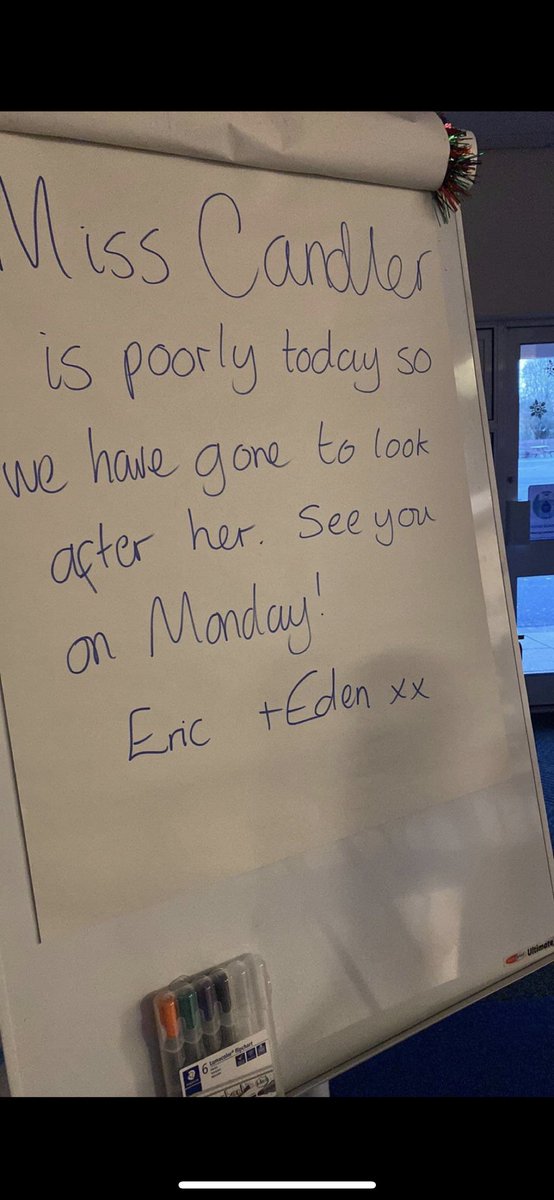 Miss Candler
is poorly today so
we have gone to look
after her. See you
on Monday!
Eric + Eden xx
Ultimate
STAEDTLER
6 Lumocolor® flipchart